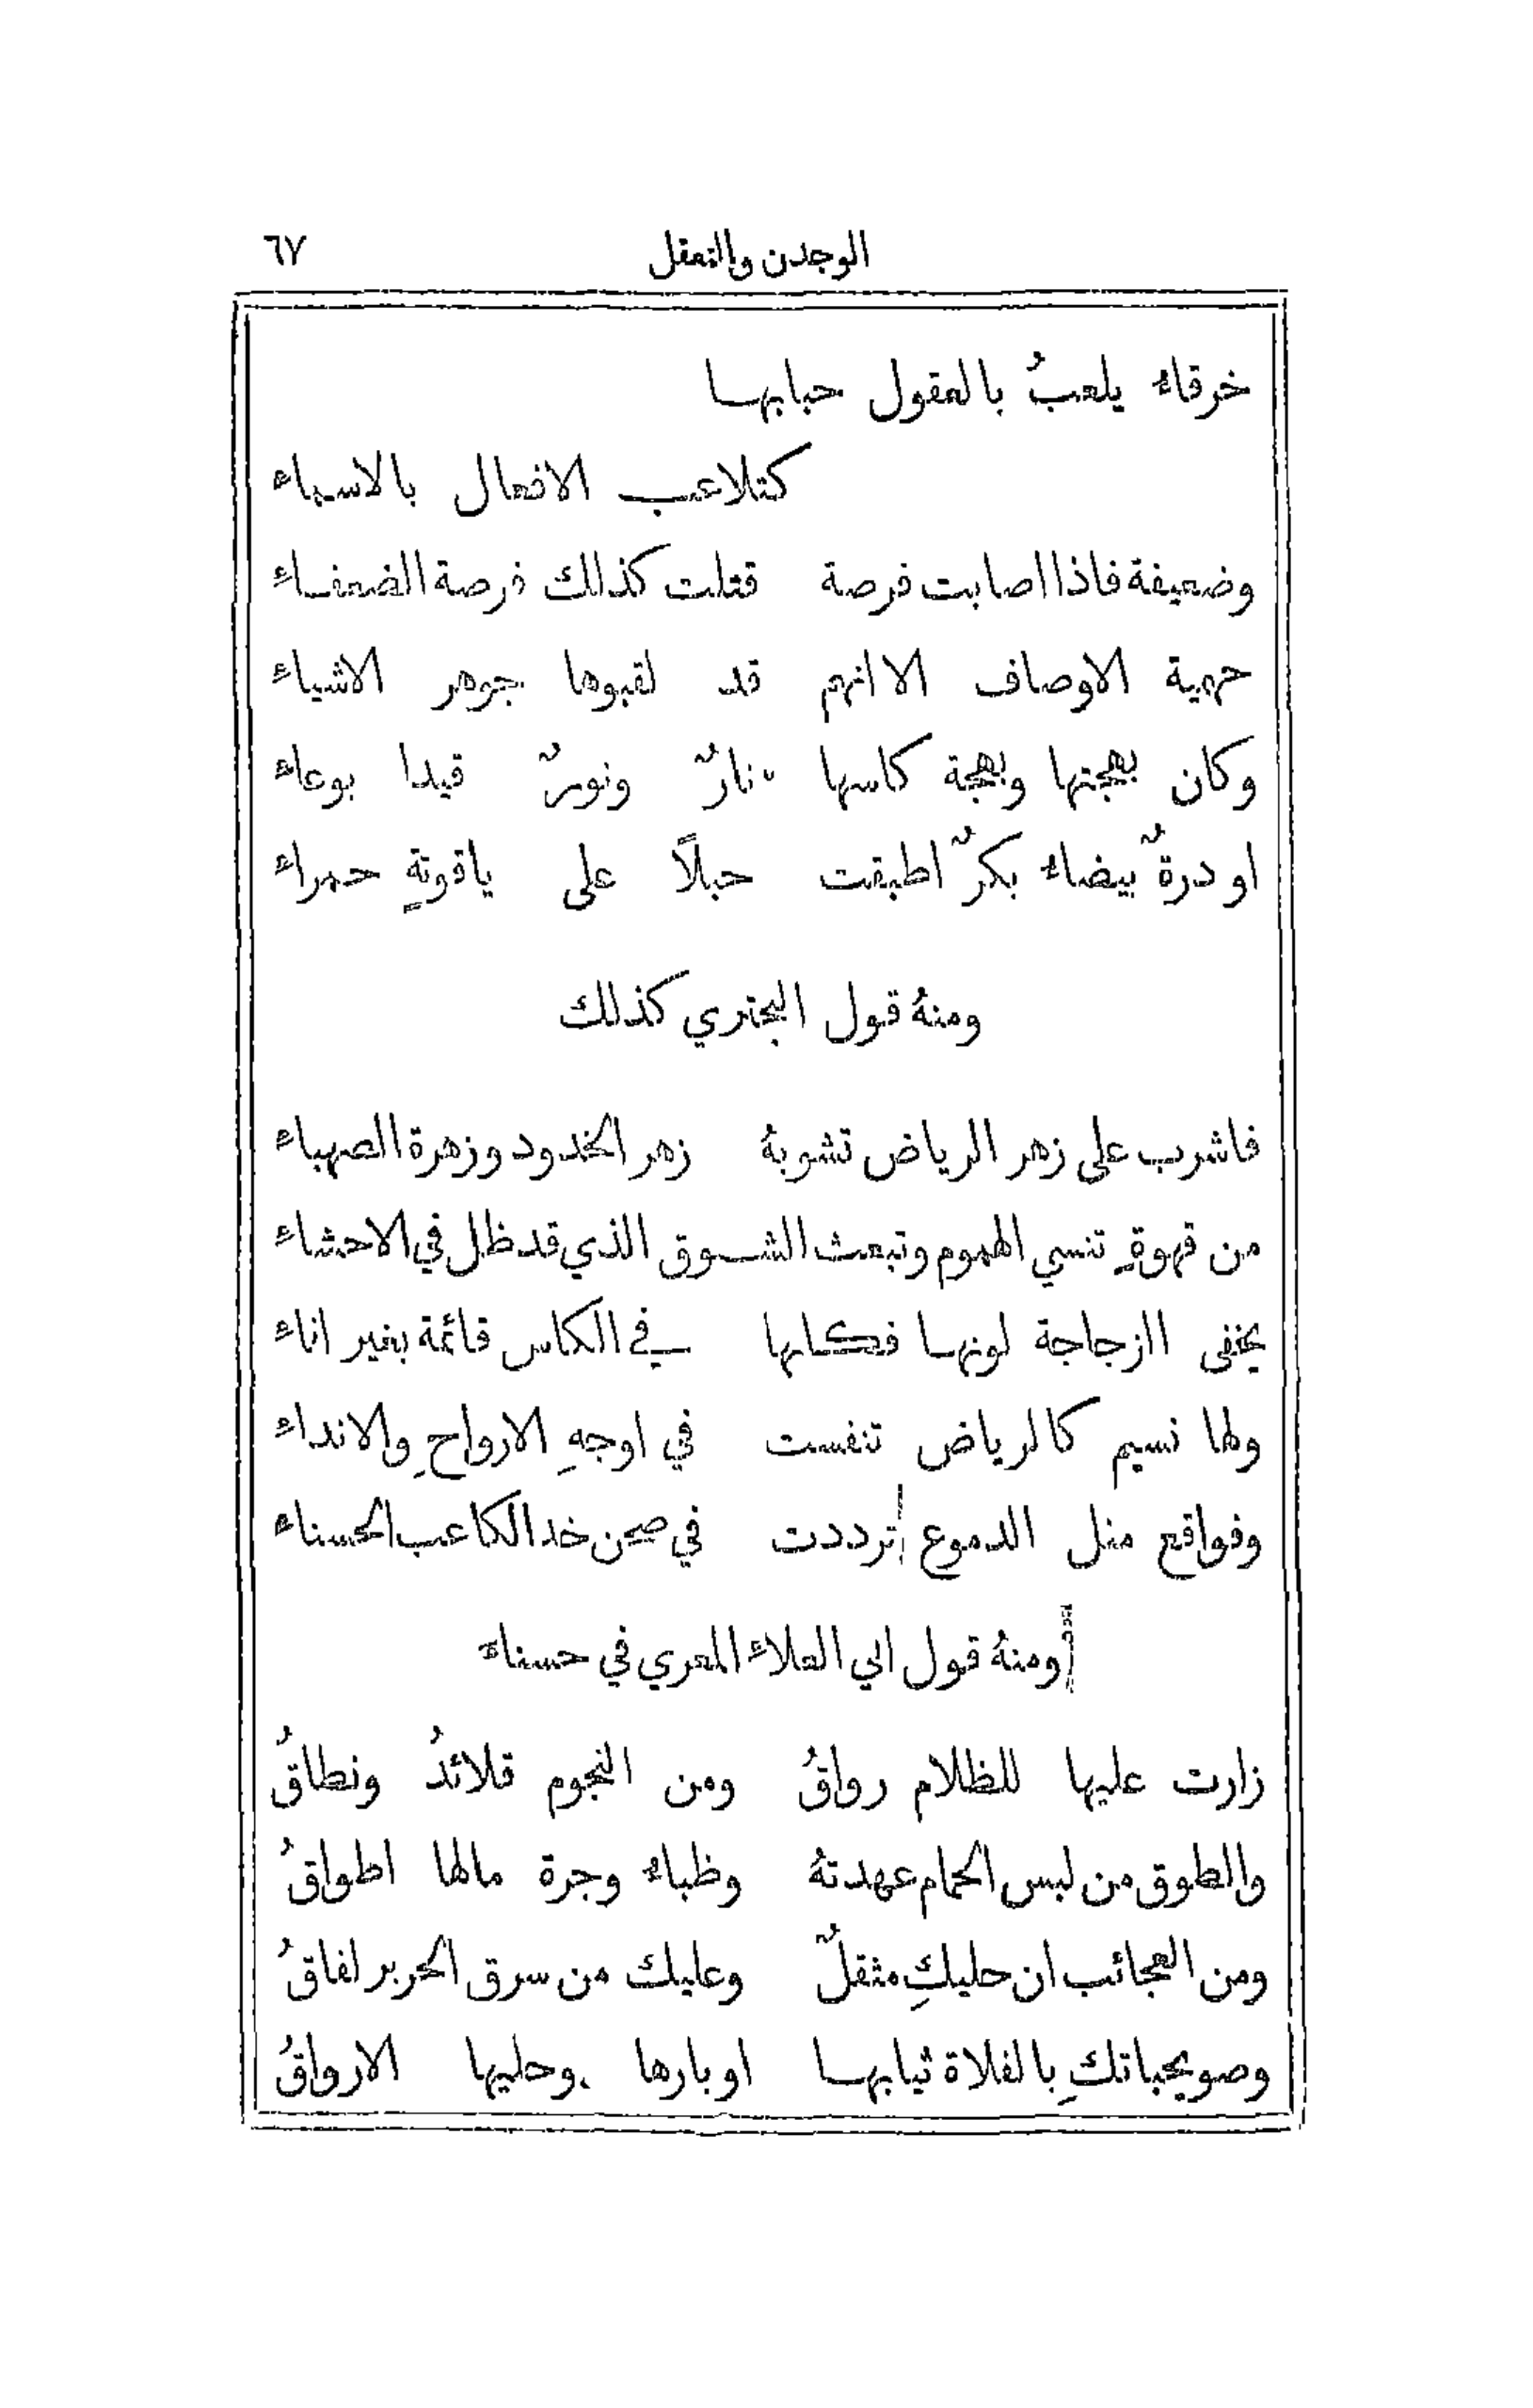 الوجدن والتعقل ٦٧
خرقاء يلعبُ بالعقول حبابها
كتلاعب الافعال بالاسماء
وضعيفة فاذا اصابت فرصة قتلت كذلك فرصة الضعفاء
جهمية الاوصاف الا انهم قد لقبوها جوهر الاشياء
وكان بهجتها وبهجة كاسها نارٌ ونورٌ قيدا بوعاء
او درةٌ بيضاء بكرٌ اطبقت حبلاً على ياقوتةٍ حمراء
ومنهُ قول البحتري كذلك
فاشرب على زهر الرياض تشوبهُ زهر الخدود وزهرة الصهباء
من قهوةٍ تنسي الهموم وتبعث الشوق الذي قد ظل في الاحشاء
يخفى الزجاجة لونها فكانها في الكاس قائمة بغير اناء
ولها نسيم كالرياض تنفست في اوجهِ الارواحِ والانداء
وفواقع مثل الدموع ترددت في صحن خد الكاعب الحسناء
ومنهُ قول ابي العلاء المعري في حسناء
زارت عليها للظلام رواقُ ومن النجوم قلائدُ ونطاقُ
والطوق من لبس الحمام عهدتهُ وظباء وجرة مالها اطواقُ
ومن العجائب ان حليكِ مثقلٌ وعليك من سرق الحرير لفاقُ
وصويحباتكِ بالفلاة ثيابها اوبارها وحليها الارواقُ